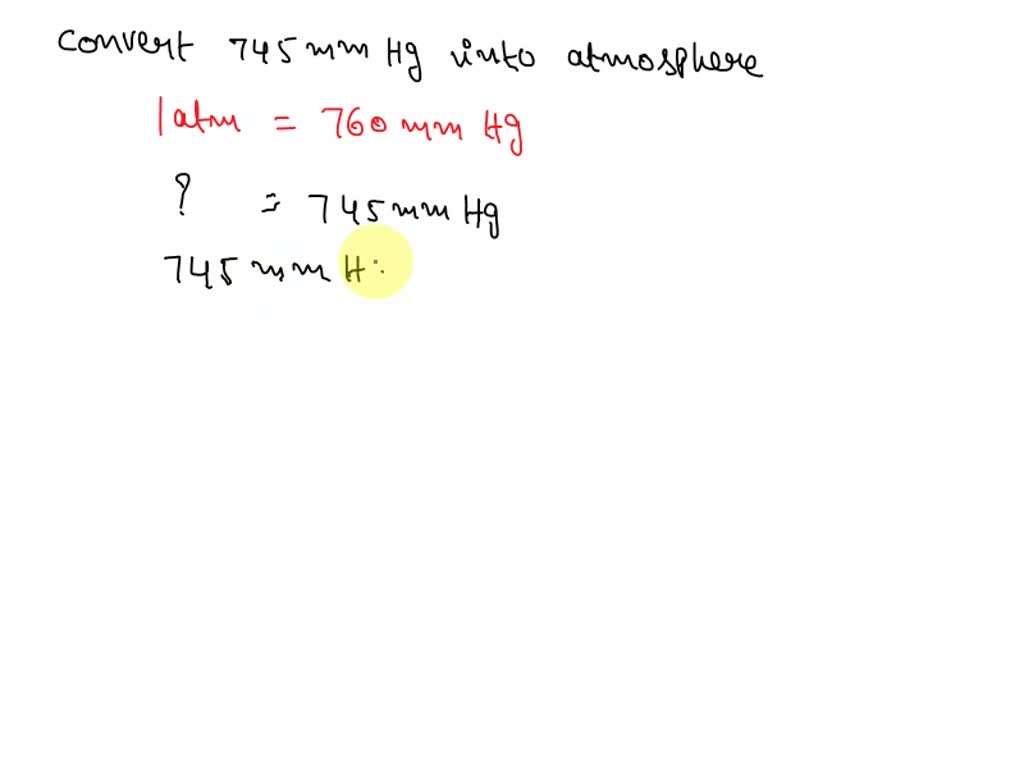 convert 745 mm Hg into atmosphere
1 atm = 760 mm Hg
? = 745 mm Hg
745 mm H